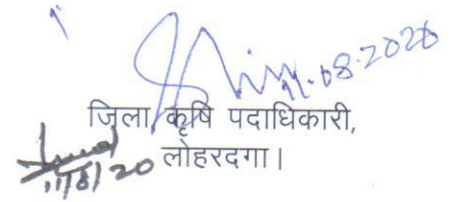 11.08.2020
जिला कृषि पदाधिकारी,
लोहरदगा।
11/8/20